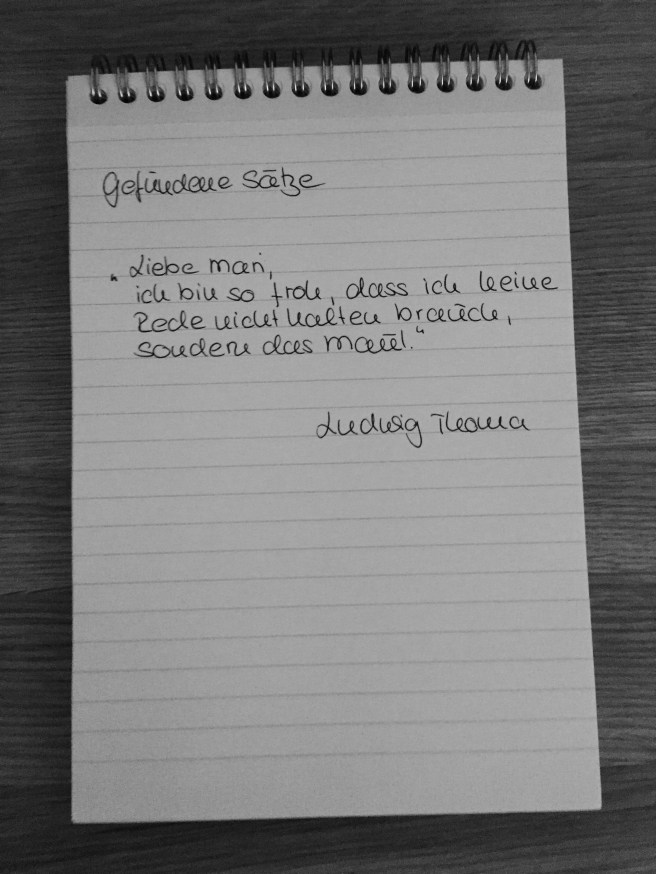 Gefundene Sätze
„Liebe Mari,
ich bin so froh, dass ich keine
Rede nicht halten brauch,
sondern das Maul."
Ludwig Thoma